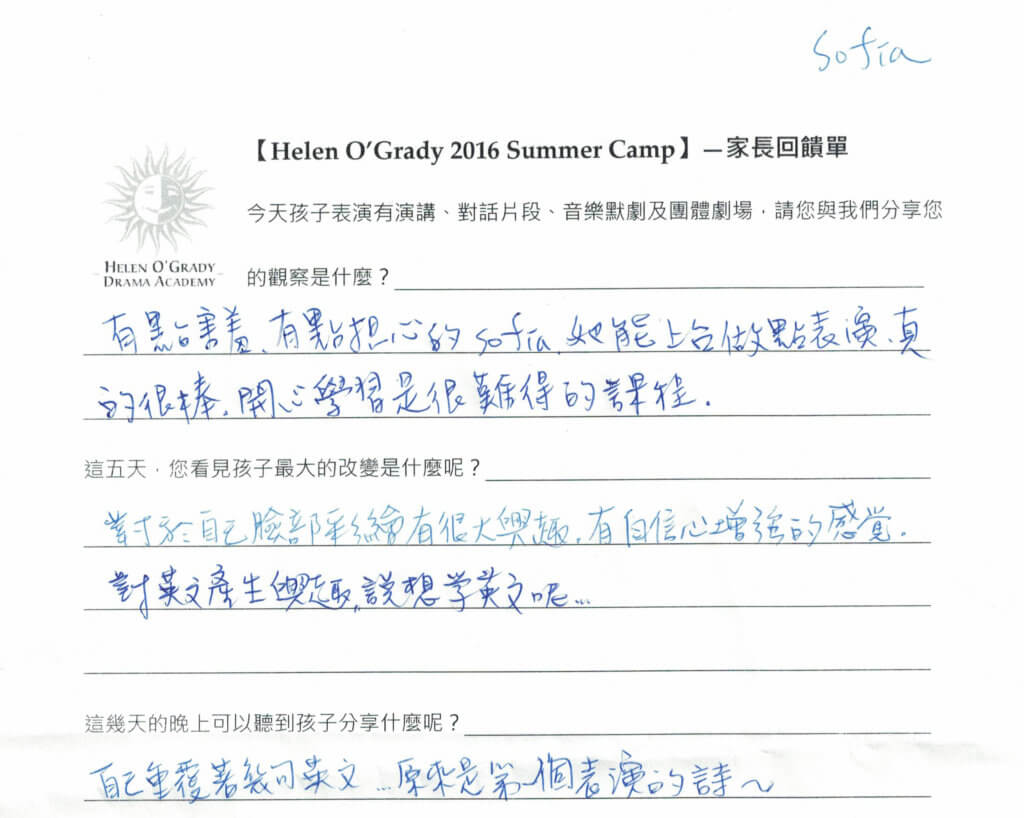 Sofia
【Helen O'Grady 2016 Summer Camp】—家長回饋單
今天孩子表演有演講、對話片段、音樂默劇及團體劇場，請您與我們分享您
HELEN O'GRADY
DRAMA ACADEMY
的觀察是什麼？
有點害羞、有點担心的 sofia, 她能上台做點表演、真
的很棒, 開心學習是很難得的課程.
這五天，您看見孩子最大的改變是什麼呢？
對於自己臉部彩繪有很大興趣, 有自信心增強的感覚.
對英文產生興趣, 說想学英文呢...
這幾天的晚上可以聽到孩子分享什麼呢？
自己重覆著幾句英文...原來是第一個表演的詩~